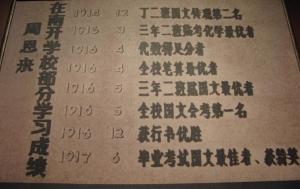 周恩来
在南开学校部分学习成绩
1914 12 丁二班国文传观第二名
三年二班临考化学最优者
1916 4 代数得足分者
1916 4 全校笔算最优者
1916 5 三年二班临国文最优者
1916 5 全校国文会考第一名
1916 12 获行书优胜
1917 6 毕业考试国文最佳者、获特奖